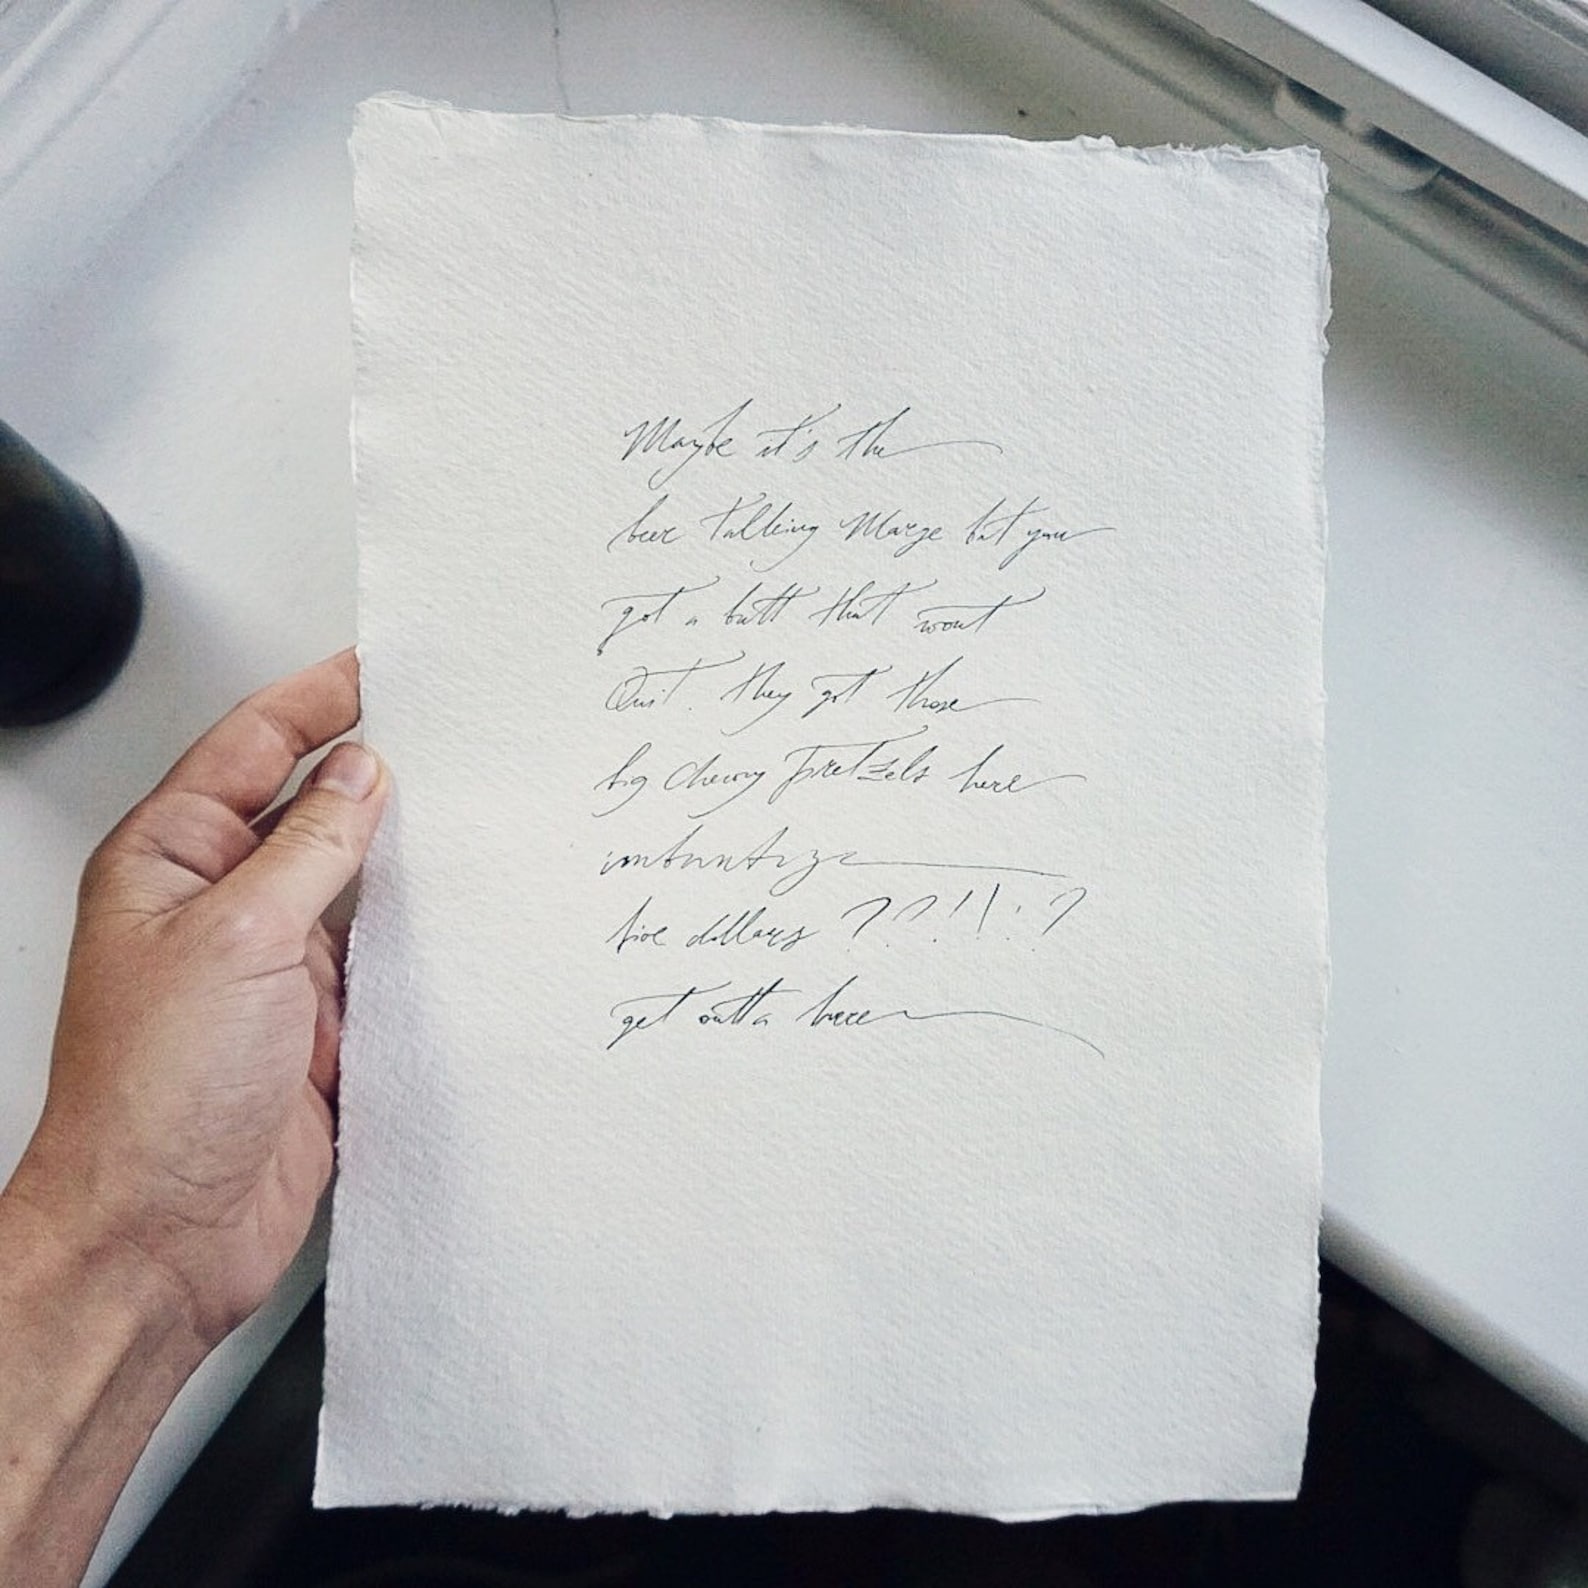 Maybe it's the
beer talking Marge but you
got a butt that wont
Quit. they got those
big chewy pretzels here
five dollars ??!!:?
get outta here